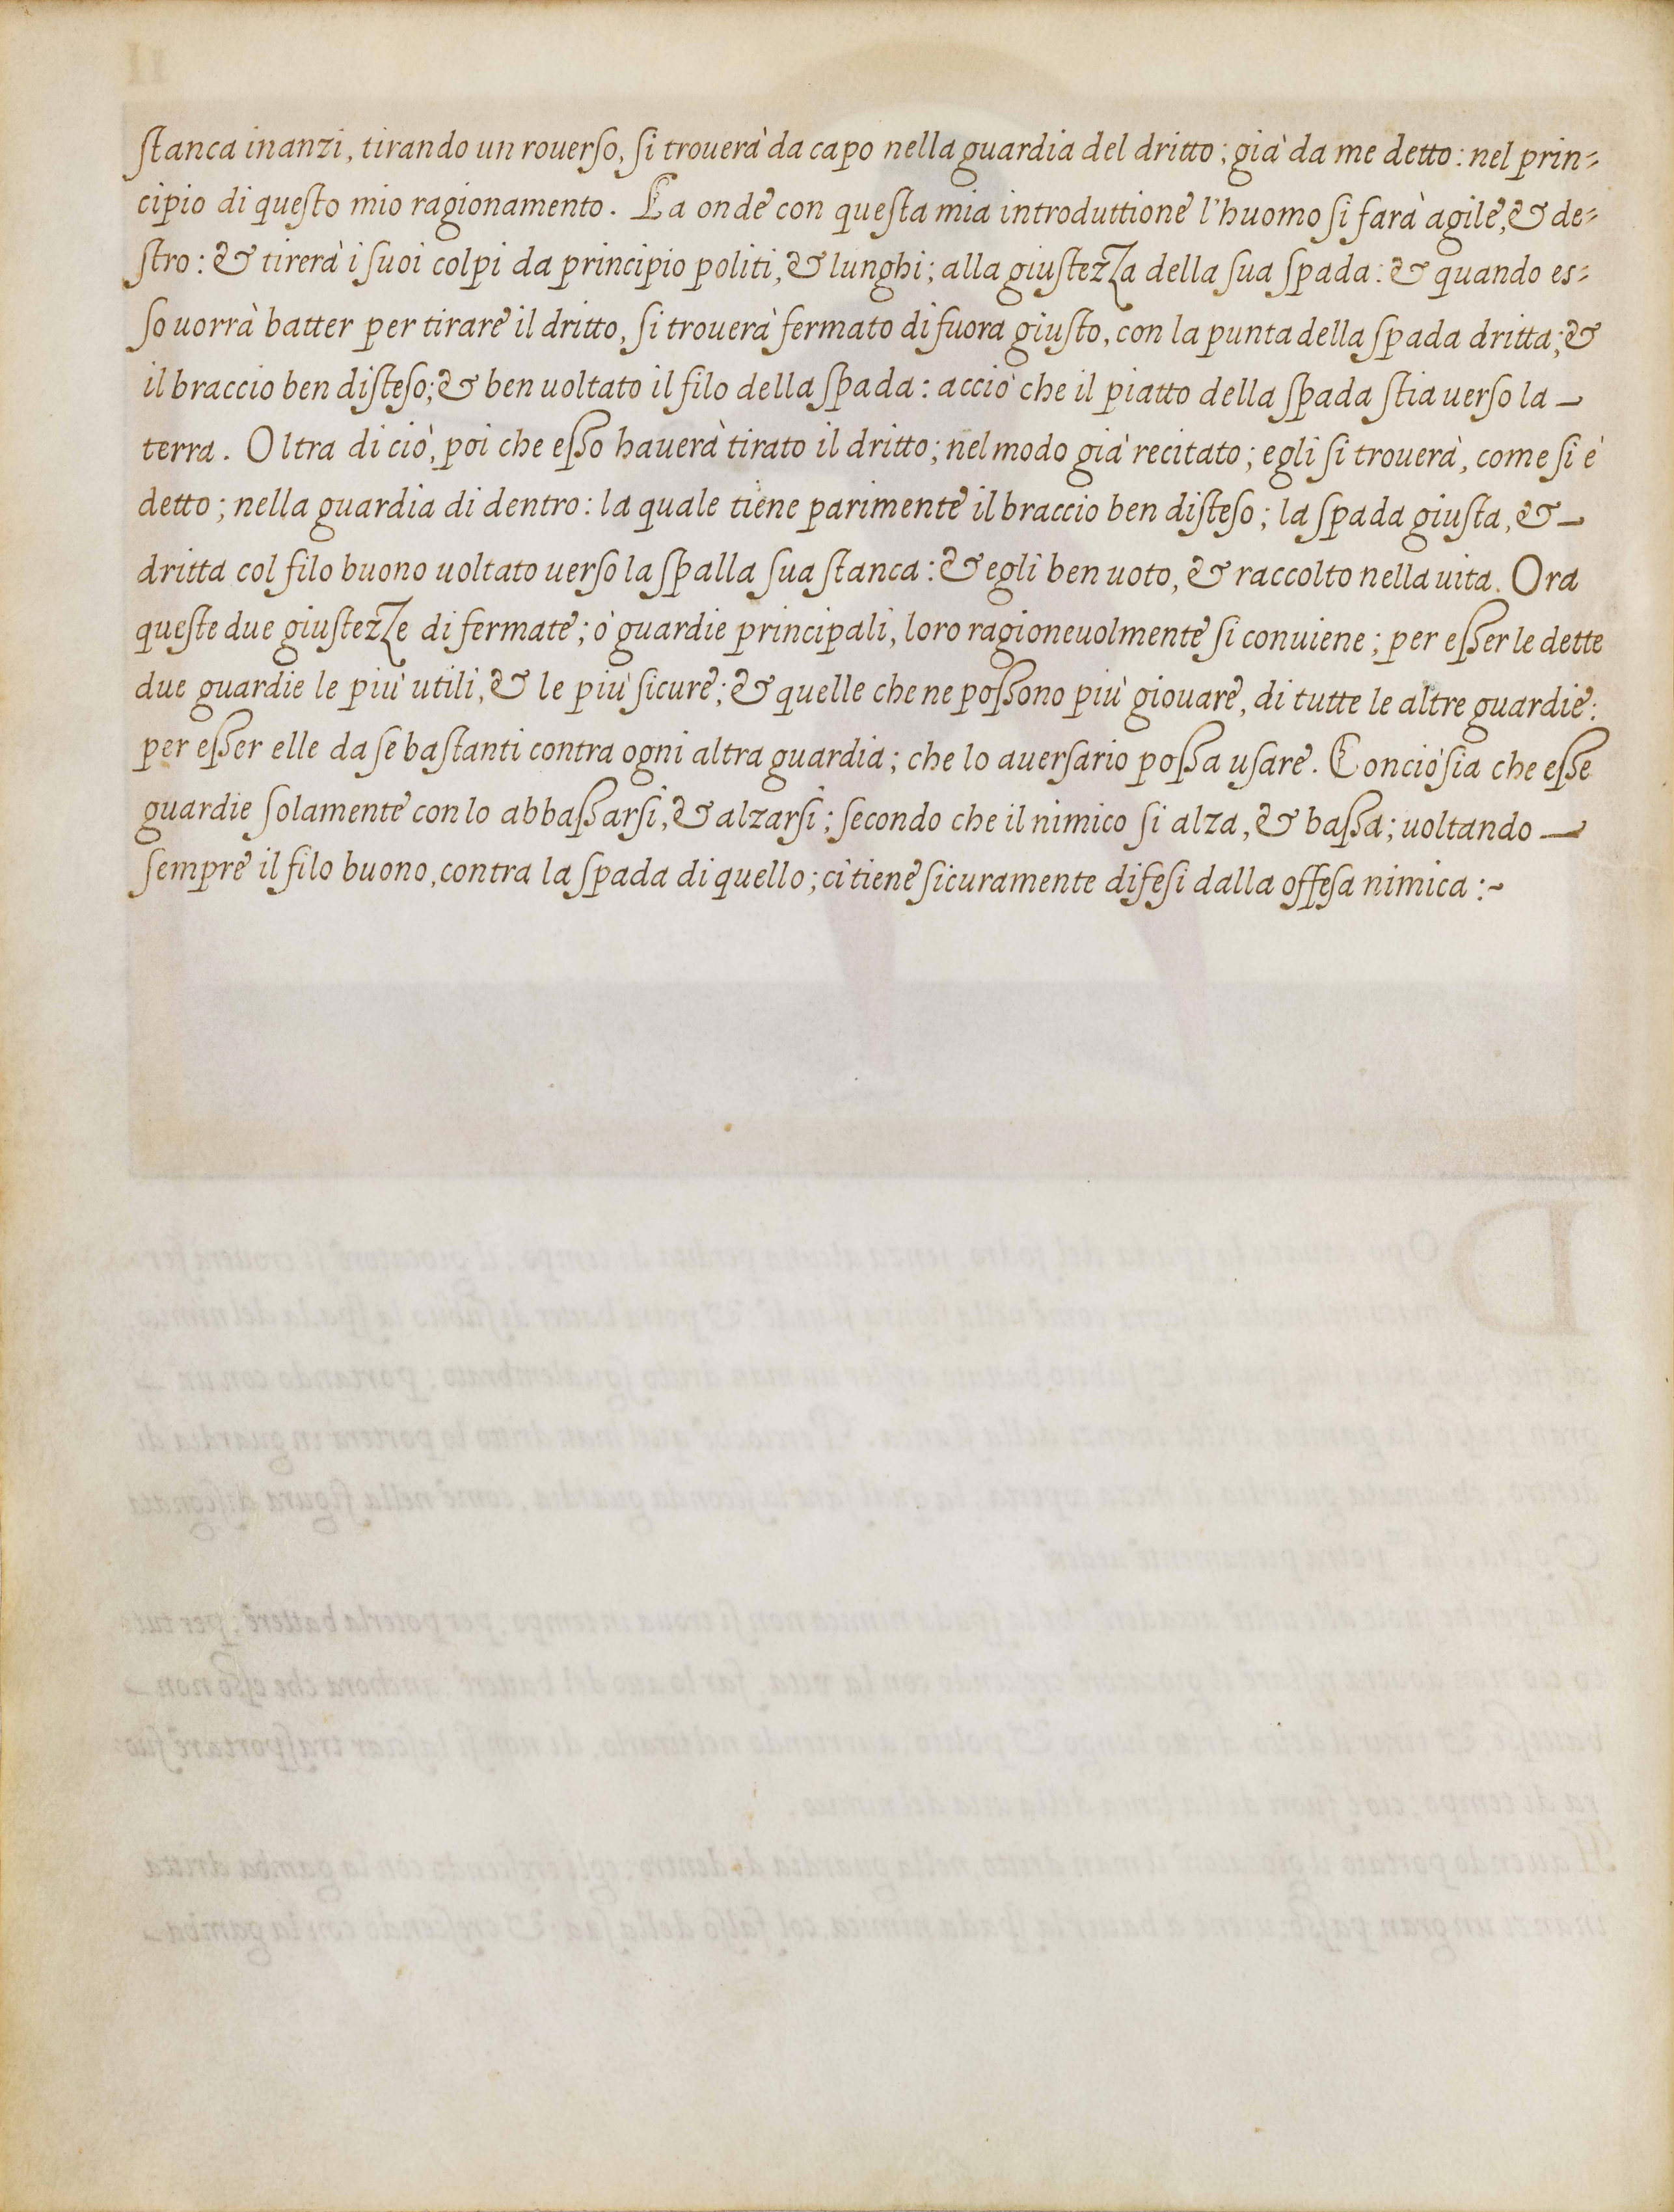 ſtanca inanzi, tirando un rouerſo, ſi trouerà da capo nella guardia del dritto; già da me detto: nel prin-
cipio di queſto mio ragionamento. La onde con queſta mia introduttione l'huomo ſi farà agile, & de-
ſtro: & tirerà i ſuoi colpi da principio politi, & lunghi; alla giuſtezza della ſua ſpada: & quando es-
ſo uorrà batter per tirare il dritto, ſi trouerà fermato di fuora giuſto, con la punta della ſpada dritta; &
il braccio ben diſteſo; & ben uoltato il filo della ſpada: acciò che il piatto della ſpada ſtia uerſo la
terra. Oltra di ciò, poi che eſſo hauerà tirato il dritto; nel modo già recitato; egli ſi trouerà, come ſi è
detto; nella guardia di dentro: la quale tiene parimente il braccio ben diſteſo; la ſpada giuſta, &
dritta col filo buono uoltato uerſo la ſpalla ſua ſtanca: & egli ben uoto, & raccolto nella uita. Ora
queſte due giuſtezze di fermate; ò guardie principali, loro ragioneuolmente ſi conuiene; per eſſer le dette
due guardie le più utili, & le più ſicure; & quelle che ne poſſono più giouare, di tutte le altre guardie:
per eſſer elle da ſe baſtanti contra ogni altra guardia; che lo auerſario poſſa uſare. Conciòſia che eſſe
guardie ſolamente con lo abbaſſarſi, & alzarſi; ſecondo che il nimico ſi alza, & baſſa; uoltando
ſempre il filo buono, contra la ſpada di quello; ci tiene ſicuramente difeſi dalla offeſa nimica :~